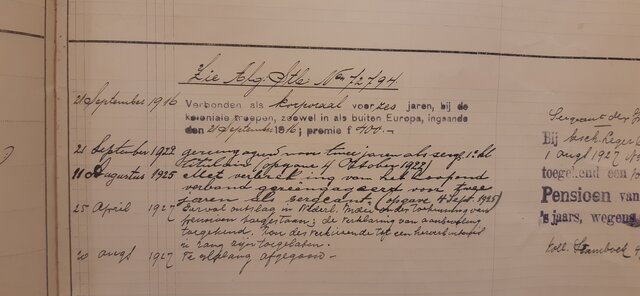 Zie Alg. Stb No 72794
21 September 1916 Verbonden als korporaal voor zes jaren, bij de
koloniale troepen, zoowel in als buiten Europa, ingaande
den 21 September 1916; premie f 400.-
21 September 1922 gereëngageerd voor twee jaren als serg. 
titulair (opgave 4 October 1922)
11 Augustus 1925 Met verbreking van het loopend
verband gereëngageerd voor twee
jaren als sergeant (opgave 4 Sept. 1925)
25 April 1927 Eervol ontslag in Nederl. Indië onder toekenning van
pensioen toegestaan; de verklaring van
toegekend. Kon des verkiezende tot een
rang zijn toegelaten.
20 augs 1927 Te afgegaan -
Sergeant der
Bij besch. Reger
1 augs 1927 No
toegekend een
Pensioen van
's jaars, wegens
Koll. Stamboek